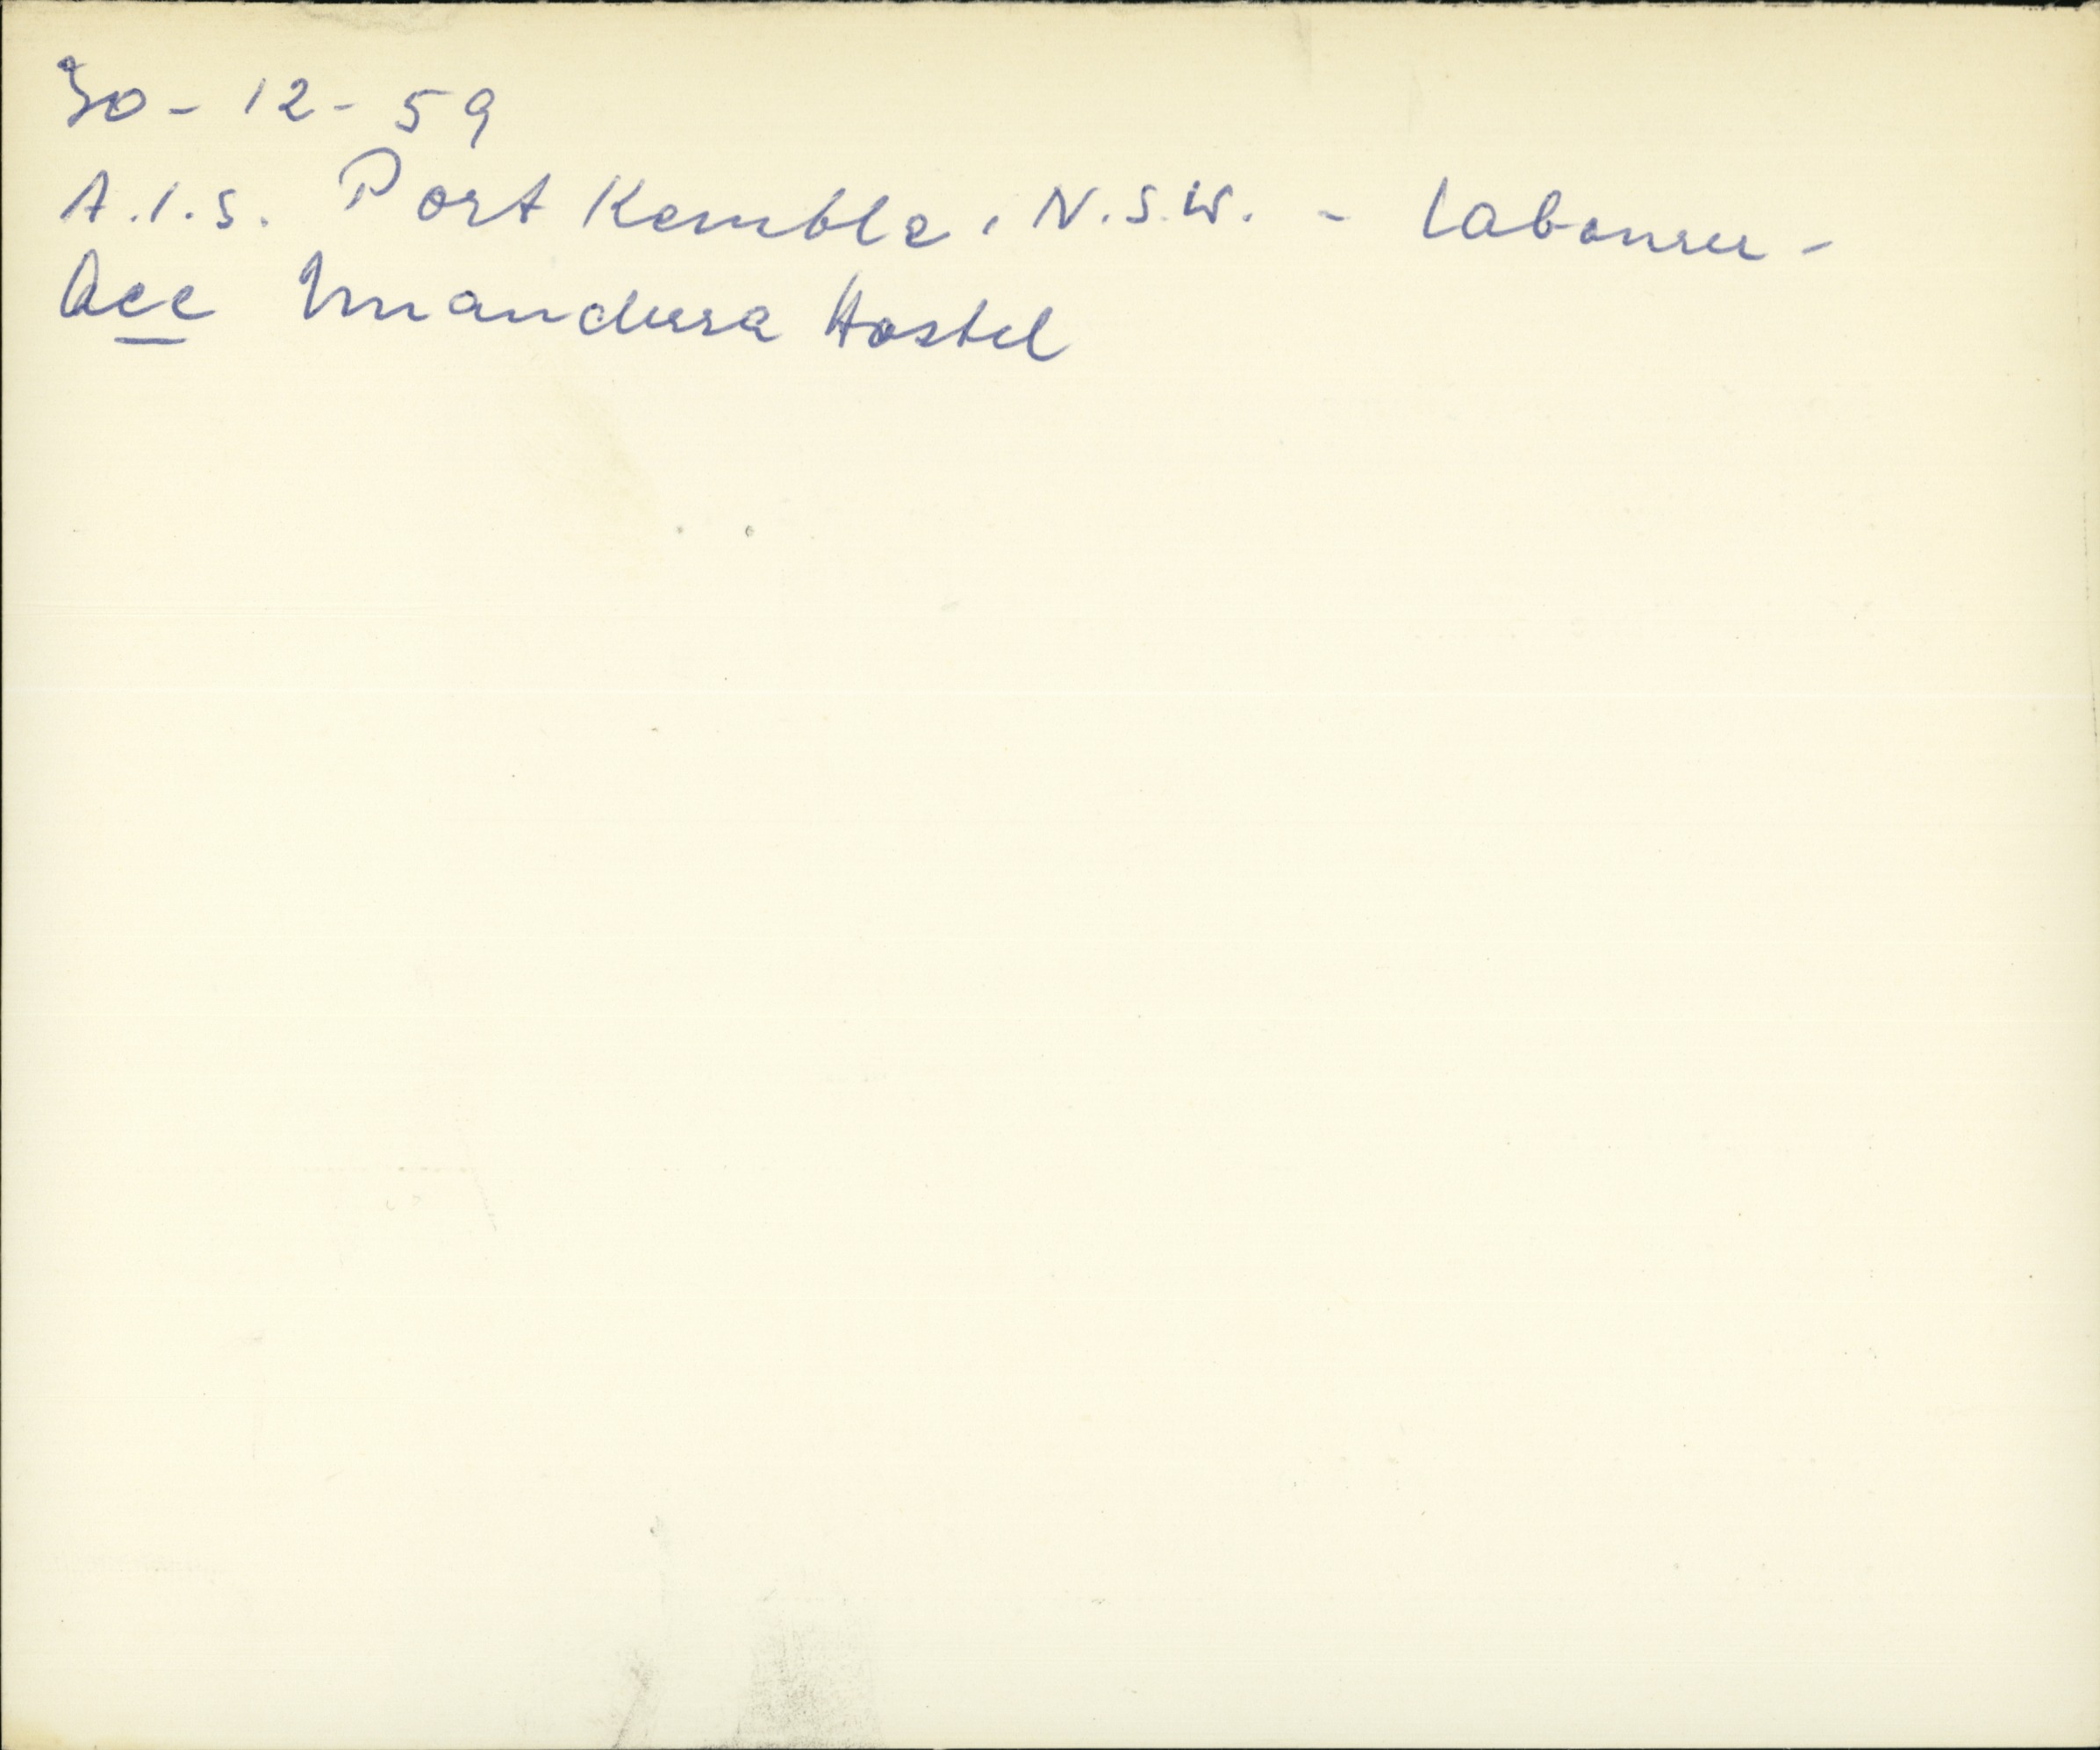 30-12-59
A.I.S. Port Kembla, N.S.W. - Labourer -
Acc Unanderra Hostel